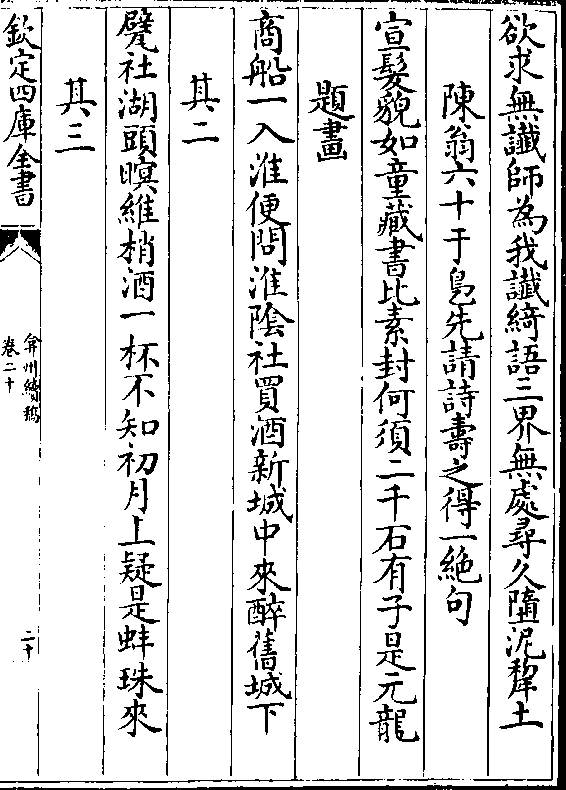 欲求無讖師為我讖綺語三界無處尋久墮泥犂土
陳翁六十于鳧先請詩壽之得一絶句
宣髮貌如童藏書比素封何須二千石有子是元龍
題畫
商船一入淮便問淮陰社買酒新城中來醉舊城下
其二
甓社湖頭暝維梢酒一杯不知初月上疑是蚌珠來
其三
欽定四庫全書
弇州續稿
卷二十
二十